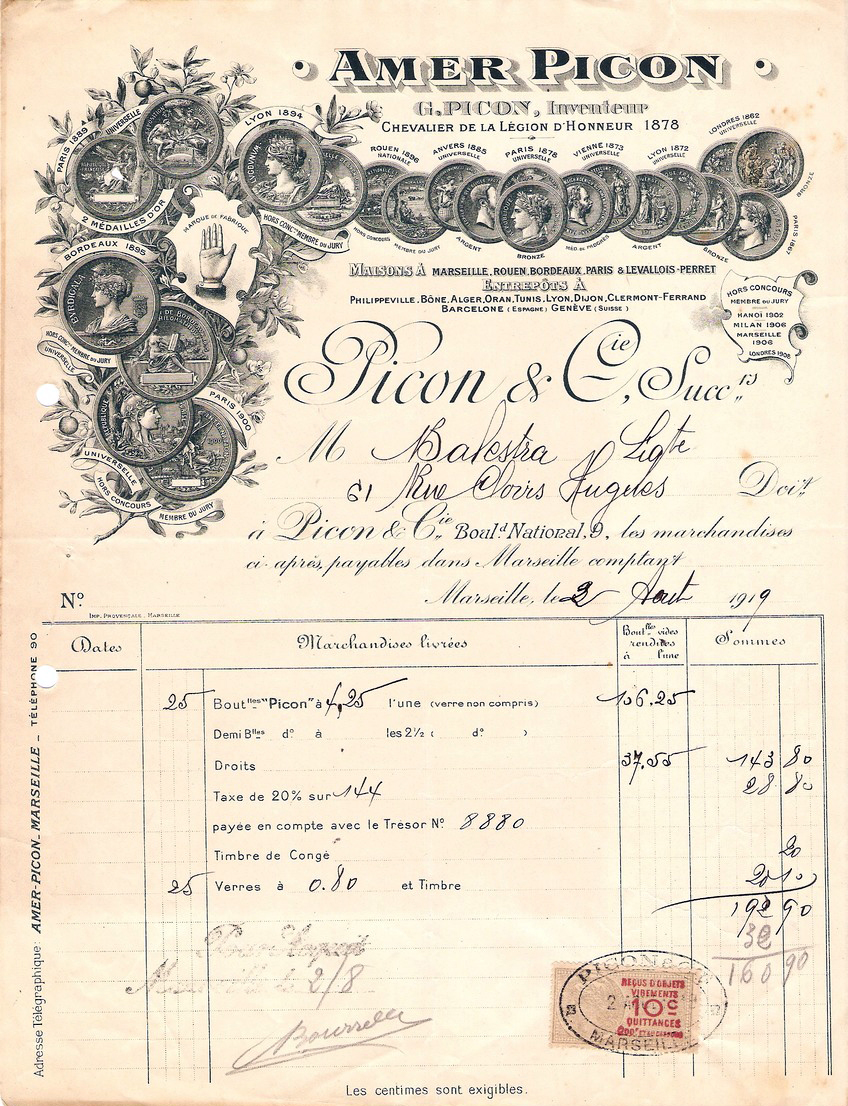 AMER PICON
G. PICON, Inventeur
CHEVALIER DE LA LÉGION D'HONNEUR 1878
PARIS 1889 UNIVERSELLE
2 MÉDAILLES D'OR
LYON 1894
HORS CONC^rs MEMBRE DU JURY
ROUEN 1896 NATIONALE
HORS CONCOURS
MEMBRE DU JURY
ANVERS 1885 UNIVERSELLE
ARGENT
PARIS 1878 UNIVERSELLE
BRONZE
VIENNE 1873 UNIVERSELLE
MÉD. DE PROGRÈS
LYON 1872 UNIVERSELLE
ARGENT
LONDRES 1862 UNIVERSELLE
BRONZE
PARIS 1867
BRONZE
MARQUE DE FABRIQUE
BORDEAUX 1895
HORS CONC^rs MEMBRE DU JURY
UNIVERSELLE
PARIS 1900
UNIVERSELLE
HORS CONCOURS MEMBRE DU JURY
MAISONS À MARSEILLE, ROUEN, BORDEAUX, PARIS & LEVALLOIS-PERRET
ENTREPÔTS À
PHILIPPEVILLE, BÔNE, ALGER, ORAN, TUNIS, LYON, DIJON, CLERMONT-FERRAND
BARCELONE (ESPAGNE) GENÈVE (SUISSE)
HORS CONCOURS
MEMBRE DU JURY
HANOÏ 1902
MILAN 1906
MARSEILLE
1906
LONDRES 1908
Picon & Cie, Succrs
M Balestra Liqte
61 Rue Clovis Hugues Doit
à Picon & Cie, Boul.d National, 9, les marchandises
ci-après, payables dans Marseille comptant
Marseille, le 2 Aout 1919
N°
IMP. PROVENÇALE, MARSEILLE
Dates Marchandises livrées Boutlles vides rendues à l'une Sommes
25 Boutlles "Picon" à 4,25 l'une (verre non compris) 106.25
Demi Blles d° à les 2½ ( d° )
Droits 37.55 143 80
Taxe de 20% sur 144 28 80
payée en compte avec le Trésor N° 8880
Timbre de Congé 20
25 Verres à 0.80 et Timbre 20 10
192 90
32
160 90
Pour Acquit
Marseille le 2/8
PICON & Cie
MARSEILLE
REÇUS D'OBJETS
10c
QUITTANCES
Adresse Télégraphique: AMER-PICON-MARSEILLE _ TÉLÉPHONE 90
Les centimes sont exigibles.